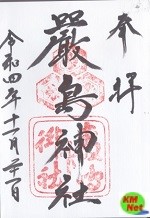 奉拝
嚴島神社
令和四年十一月
KM
Net